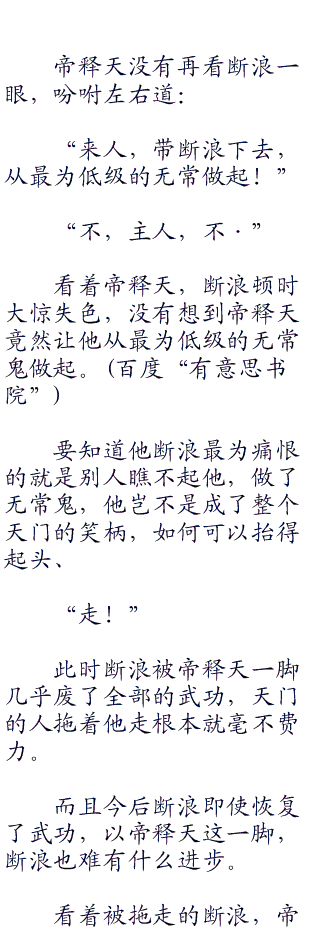 帝释天没有再看断浪一
眼，吩咐左右道：
“来人，带断浪下去，
从最为低级的无常做起！”
“不，主人，不·”
看着帝释天，断浪顿时
大惊失色，没有想到帝释天
竟然让他从最为低级的无常
鬼做起。(百度“有意思书
院”)
要知道他断浪最为痛恨
的就是别人瞧不起他，做了
无常鬼，他岂不是成了整个
天门的笑柄，如何可以抬得
起头、
“走！”
此时断浪被帝释天一脚
几乎废了全部的武功，天门
的人拖着他走根本就毫不费
力。
而且今后断浪即使恢复
了武功，以帝释天这一脚，
断浪也难有什么进步。
看着被拖走的断浪，帝